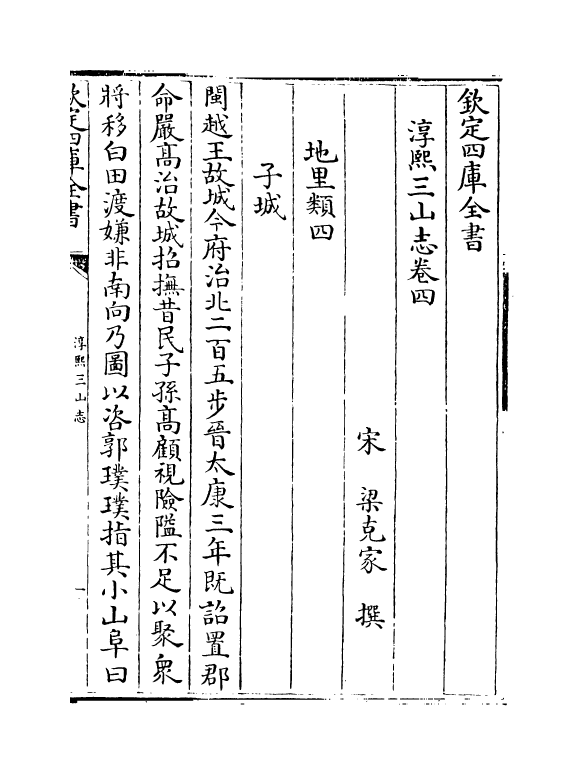 欽定四庫全書
淳熙三山志卷四
宋　梁克家　撰
地里類四
子城
閩越王故城今府治北二百五步晉太康三年既詔置郡
命嚴髙治故城招撫昔民子孫髙顧視險隘不足以聚衆
將移白田渡嫌非南向乃圖以咨郭璞璞指其小山阜曰
欽定四庫全書
淳熙三山志
一